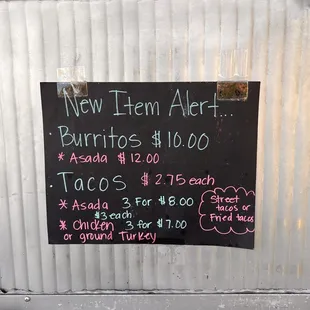 New Item Alert...
Burritos $10.00
* Asada $12.00
· Tacos $2.75 each
* Asada 3 For $8.00
$3 each
* Chicken 3 for $7.00
or ground Turkey
Street
tacos or
Fried tacos